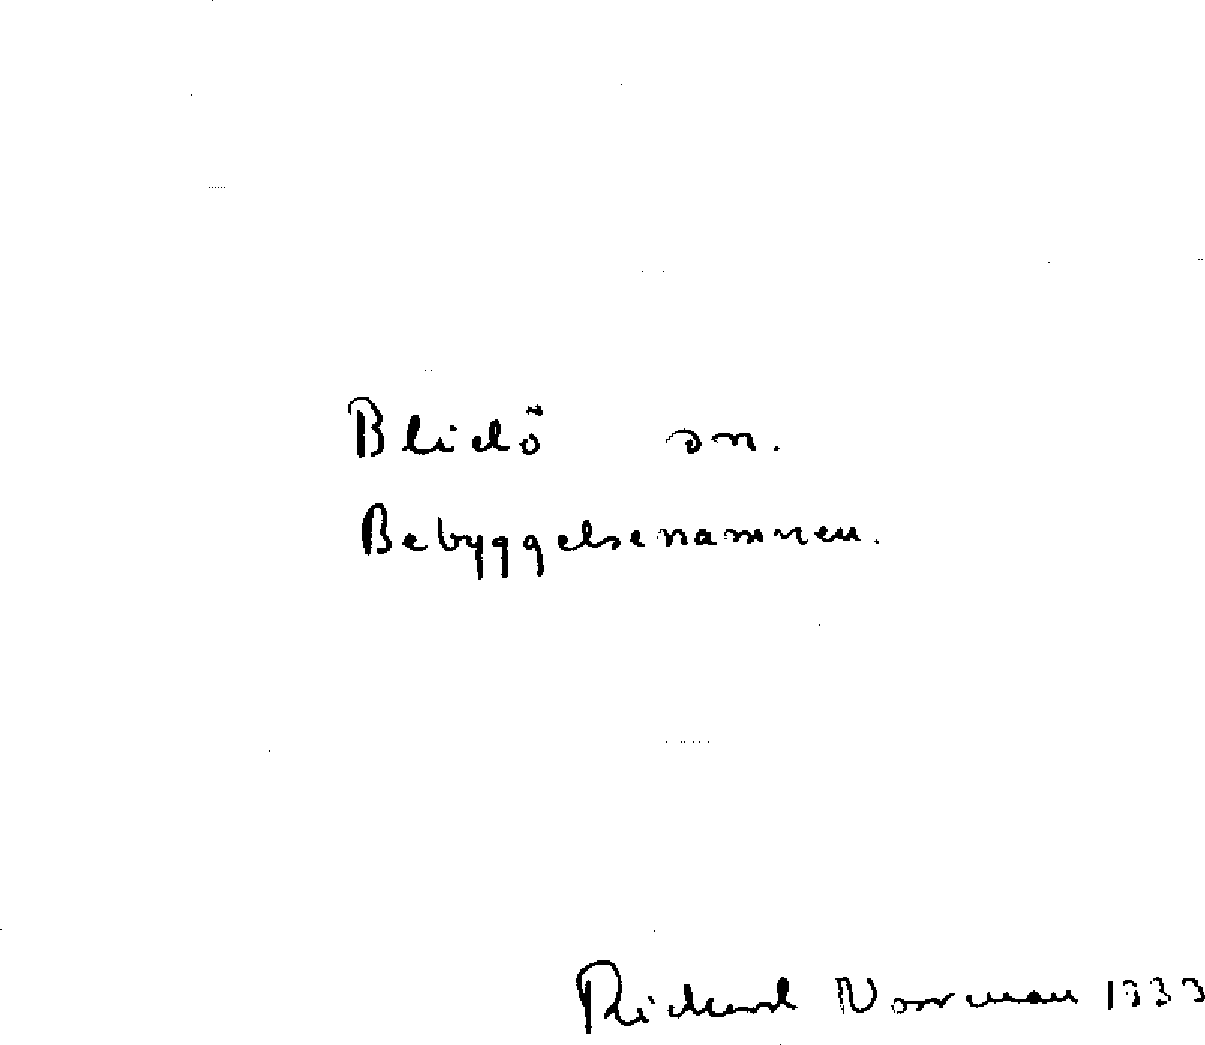 Blidö sn.
Bebyggelsenamnen.
Rickard Norrman 1933